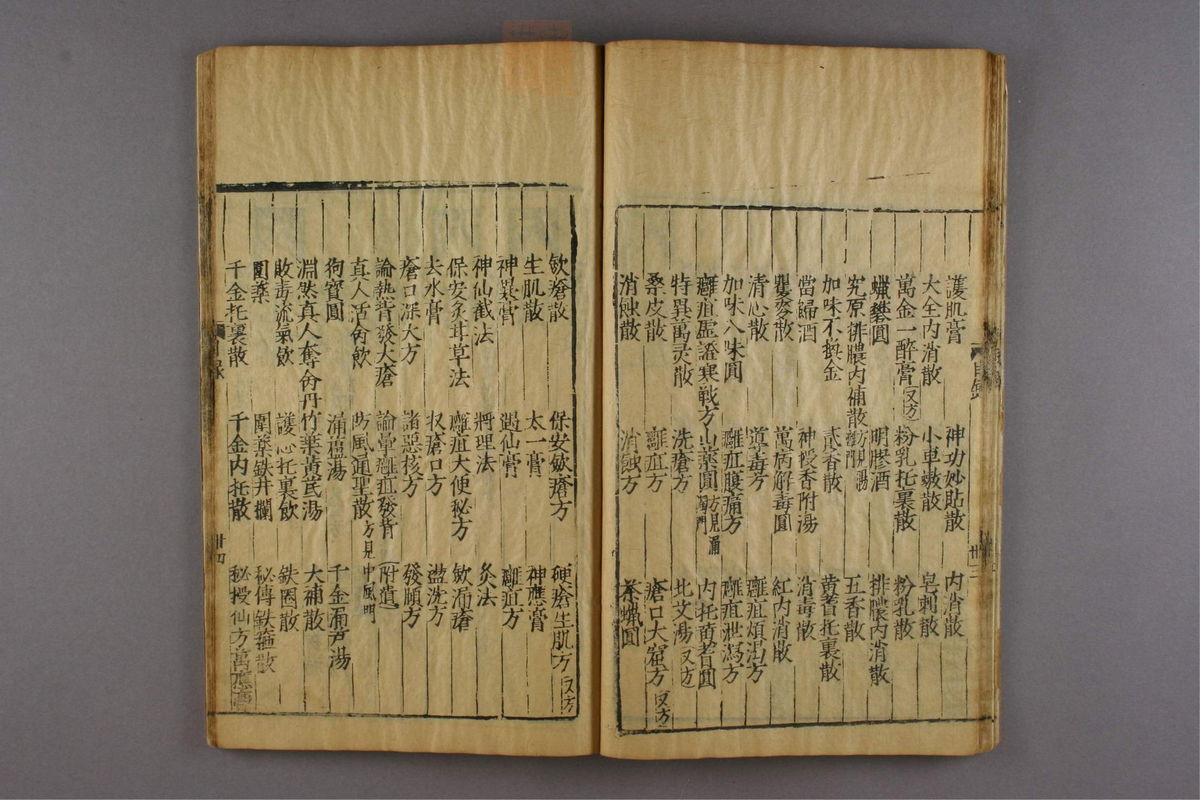 護肌膏 神功妙貼散 內消散
大全內消散 小車螯散 皂刺散
萬金一醉膏 又方 粉乳托裏散 粉乳散
蠟礬圓 明膠酒 排膿內消散
究原排膿內補散 方見 五香散
加味不換金 貳香散 黃耆托裏散
當歸酒 神授香附湯 消毒散
瞿麥散 萬病解毒圓 紅內消散
清心散 導毒方 癰疽煩渴方
加味八味圓 癰疽腹痛方 癰疽泄瀉方
癰疽虛證寒戰方 山藥圓 方見 內托黃耆圓
特異萬灵散 洗瘡方 北艾湯 又方
桑皮散 癰疽方 瘡口大窟方 又方
消蝕散 消蝕方 茶蠟圓
目錄
歛瘡散 保安歛瘡方 硬瘡生肌方 又方
生肌散 太一膏 神應膏
神異膏 遇仙膏 癰疽方
神仙截法 將理法 灸法
保安炙甘草法 癰疽大便秘方 歛漏瘡
去水膏 收瘡口方 盪洗方
瘡口深大方 諸惡核方 發頤方
論熱背發大瘡 論暈癰疽發背 附遺
真人活命飲 防風通聖散 方見中風門
狗寶圓 漏蘆湯 千金漏芦湯
淵然真人奪命丹 竹葉黃芪湯 大補散
敗毒流氣飲 護心托裏飲 鉄圈散
圍藥 圍藥鉄井攔 秘傳鉄箍散
千金托裏散 千金內托散 秘授仙方萬應膏
目錄 卅四